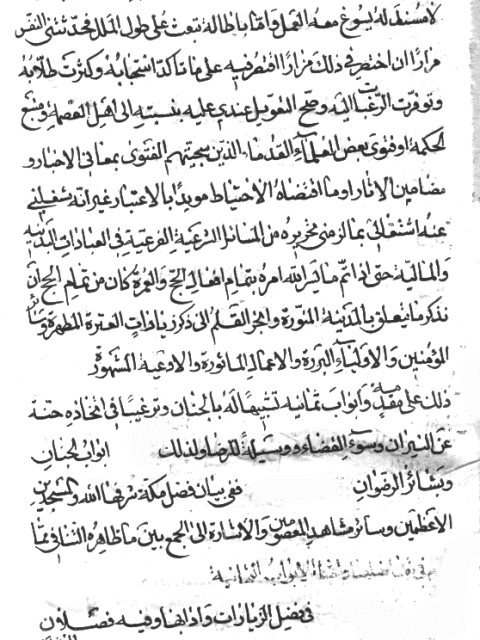 لا مستند له يسوغ معه العمل واما باطاله تبعث على طول الملل فحدثتنى النفس
مرارا ان اختصر فى ذلك مزارا اقتصر فيه على ما تاكد استحبابه وكثرت طلابه
وتوفرت الرغبات اليه وصح التعويل عندى عليه بنسبته الى اهل العصمة ومنبع
الحكمة او فتوى بعض العلماء القدماء الذين سجيتهم الفتوى بمعانى الاخبار و
مضامين الاثار او ما اقتضاه الاحتياط مويدا بالاعتبار غير انه يشغلنى
عنه اشتغالى بما لزمنى تحريره من المسائل الشرعية الفرعية فى العبادات البدنية
والمالية حتى اذا تم ما يسر الله امره بتمام افعال الحج والعمرة كان من تمام الحج ان
نذكر ما يتعلق بالمدينة المنورة وانجر القلم الى ذكر زيادات العترة المطهرة و
المؤمنين والاولياء البررة والاعمال الماثورة والادعية المشهورة
ذلك على مقدمه وابواب ثمانيه تشبيها له بالجنان وترغيبا فى اتخاذه جنة
عن النيران وسوء القضاء و وسيلة للرضا ولذلك ابواب الجنان
وبشائر الرضوان ففى بيان فضل مكة شرفها الله والمسجدين
الاعظمين وسائر مشاهد المعصومين والاشارة الى الجمع بين ما ظاهره التنافى
فى فضل الزيارات وادابها وفيه فصلان